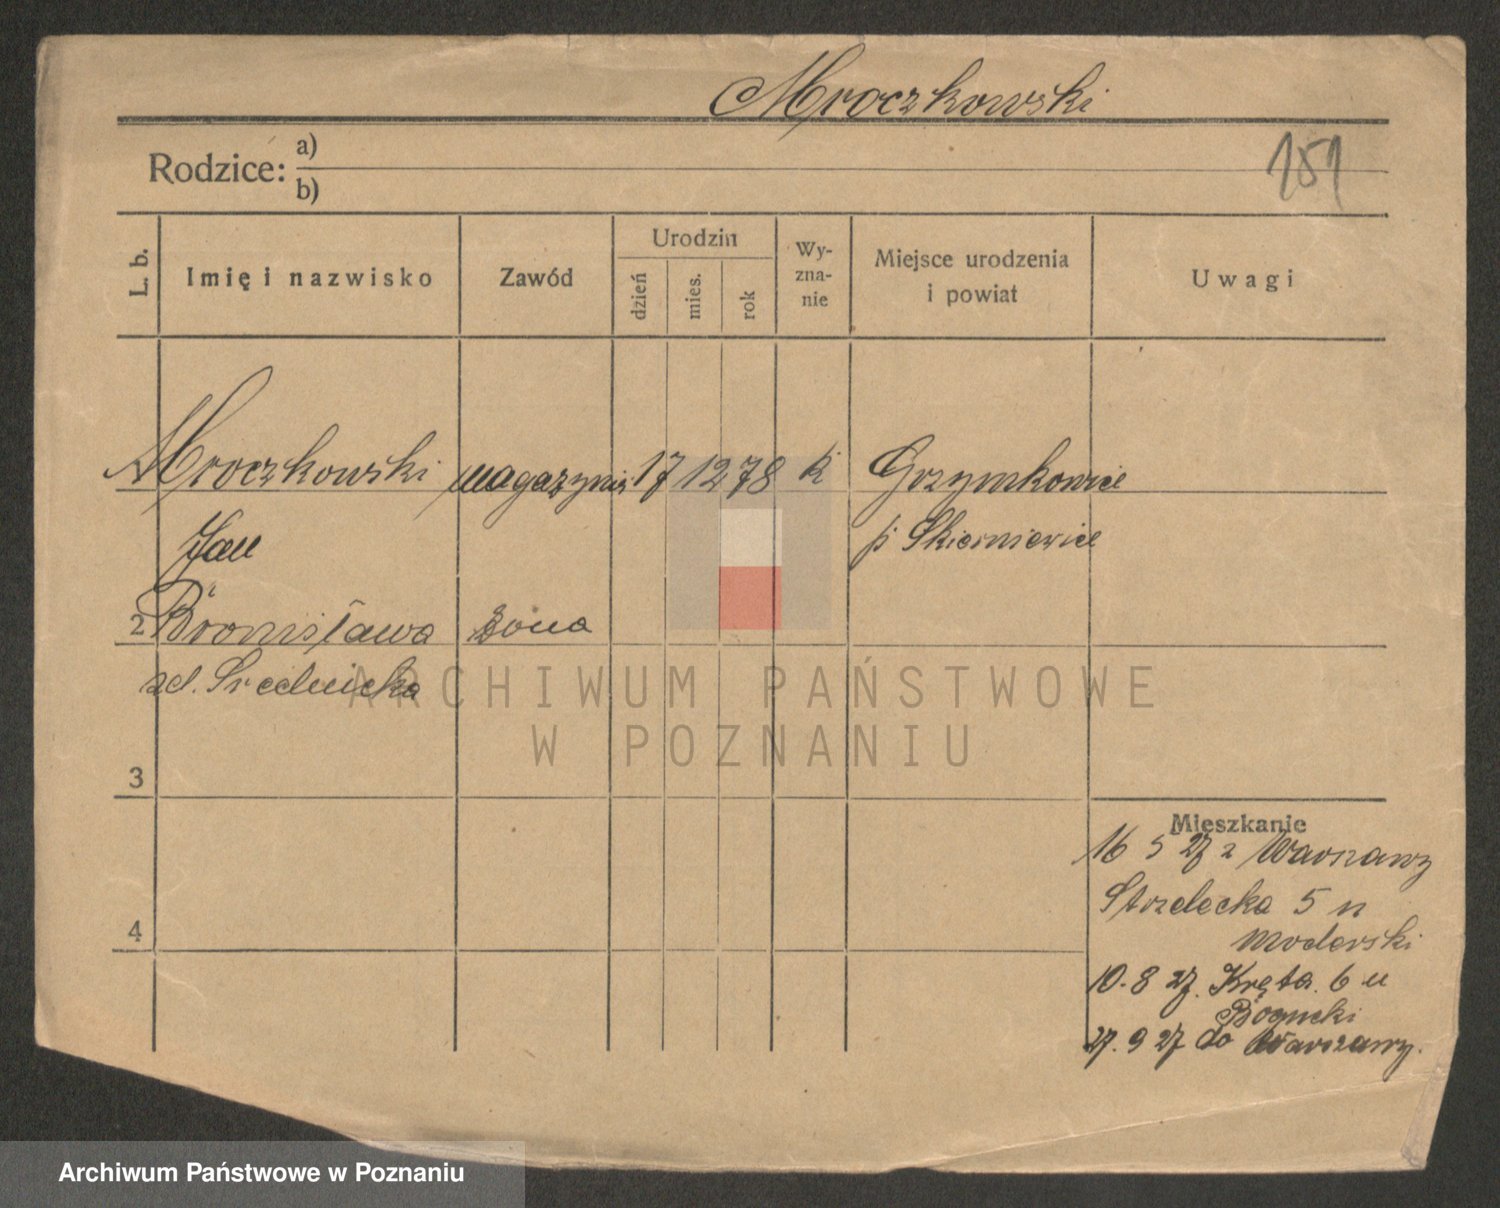 Mroczkowski
Rodzice: a)
b)
151
L. b.
Imię i nazwisko
Zawód
Urodzin
dzień
mies.
rok
Wy-
zna-
nie
Miejsce urodzenia
i powiat
Uwagi
Mroczkowski magazynier 17 12 78 k Grzymkowice
Jan p. Skierniewice
2 Bronisława żona
zd. Srednicka
ARCHIWUM PAŃSTWOWE
W POZNANIU
3
Mieszkanie
16 5 27 z Warszawy
Strzelecka 5 u
Moderski
4
10. 8 27. Kręta. 6 u
Bogucki
27. 9 27 do Warszawy.
Archiwum Państwowe w Poznaniu